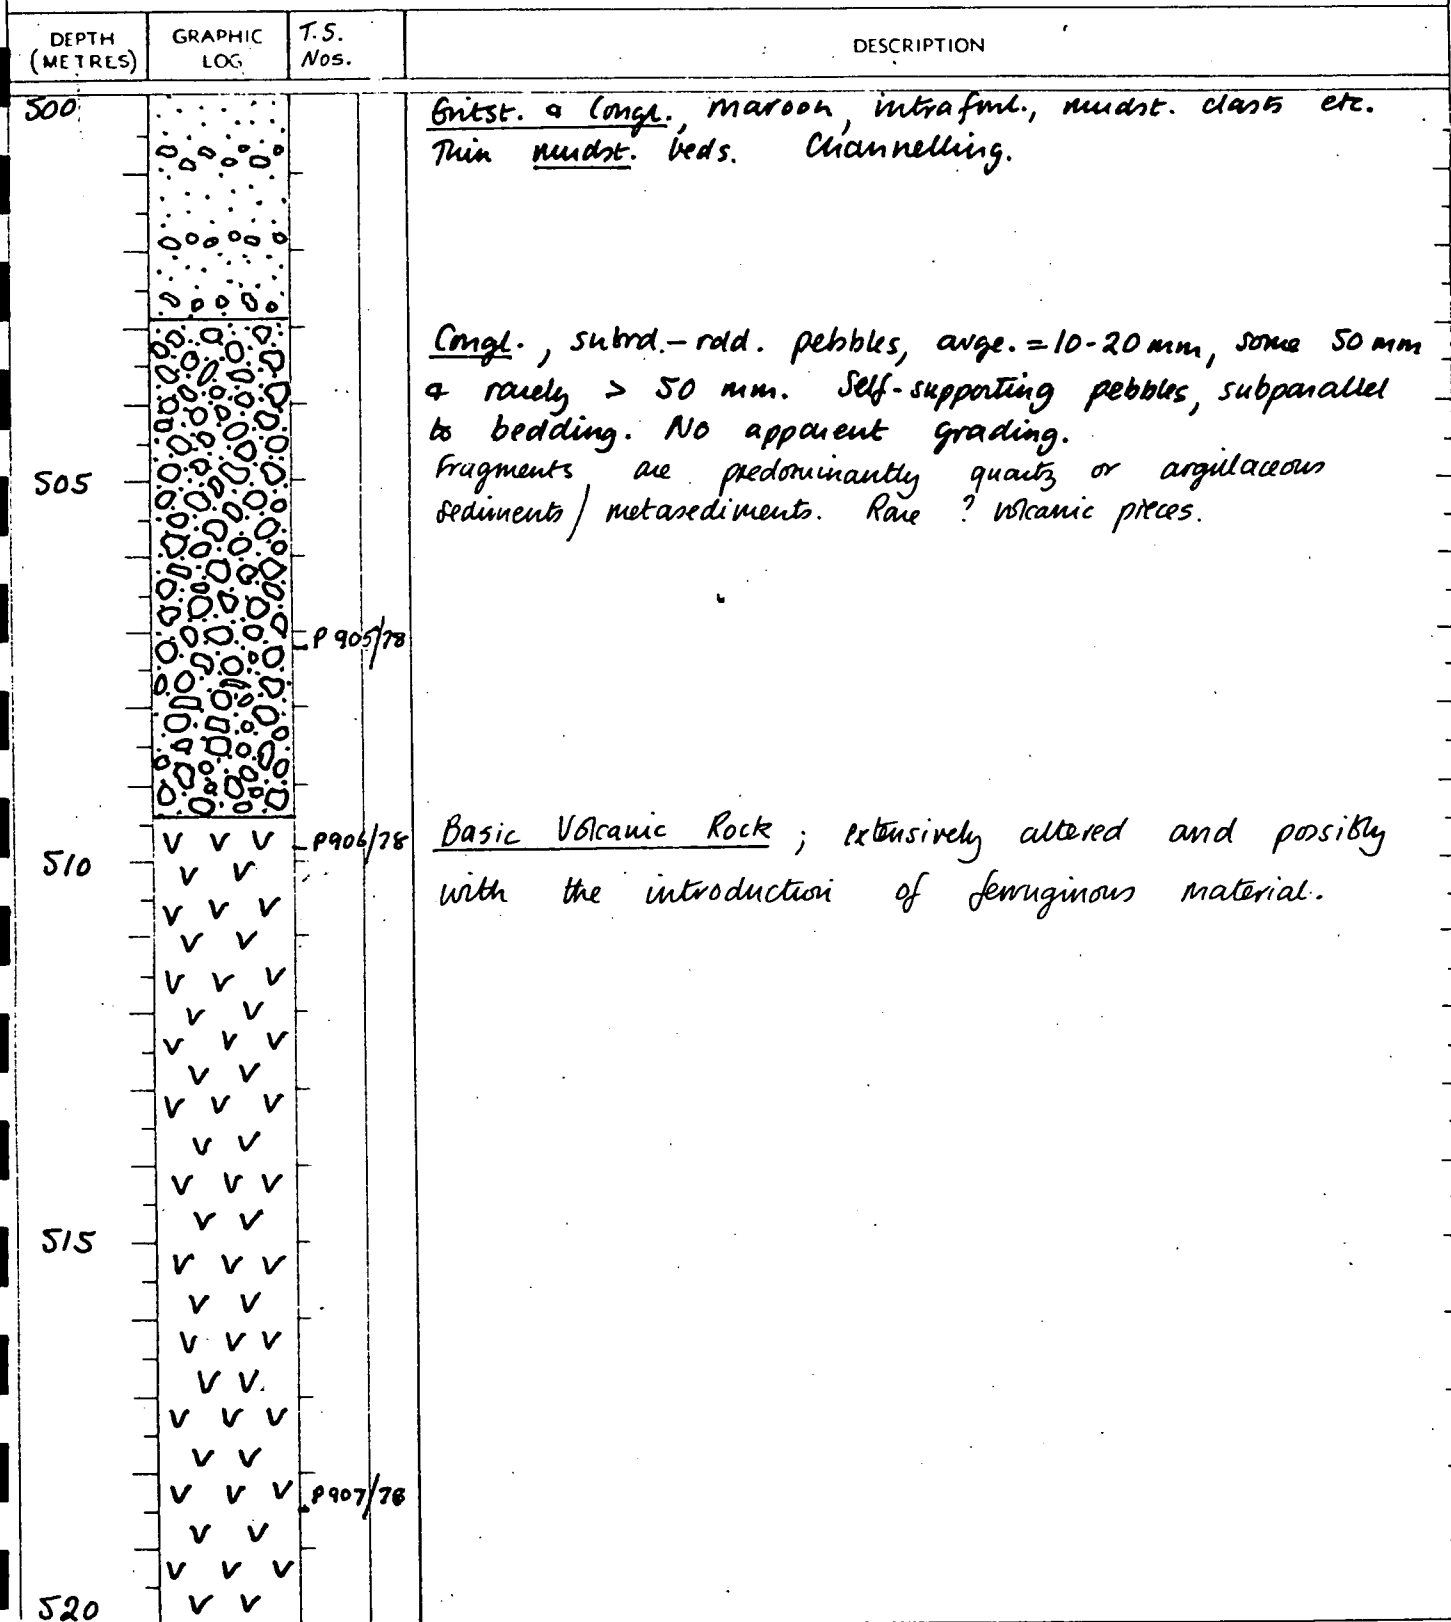 DEPTH (METRES) GRAPHIC LOG T.S. Nos. DESCRIPTION
500 Gritst. & Congl., maroon, intrafml., mudst. clasts etc.
Thin mudst. beds. Channelling.
Congl., subrd.-rdd. pebbles, avge. = 10-20 mm, some 50 mm
& rarely > 50 mm. Self-supporting pebbles, subparallel
to bedding. No apparent grading.
Fragments are predominantly quartz or argillaceous
505
sediments/metasediments. Rare ? volcanic pieces.
P905/78
P906/78 Basic Volcanic Rock ; extensively altered and possibly
510
with the introduction of ferruginous material.
515
P907/78
520